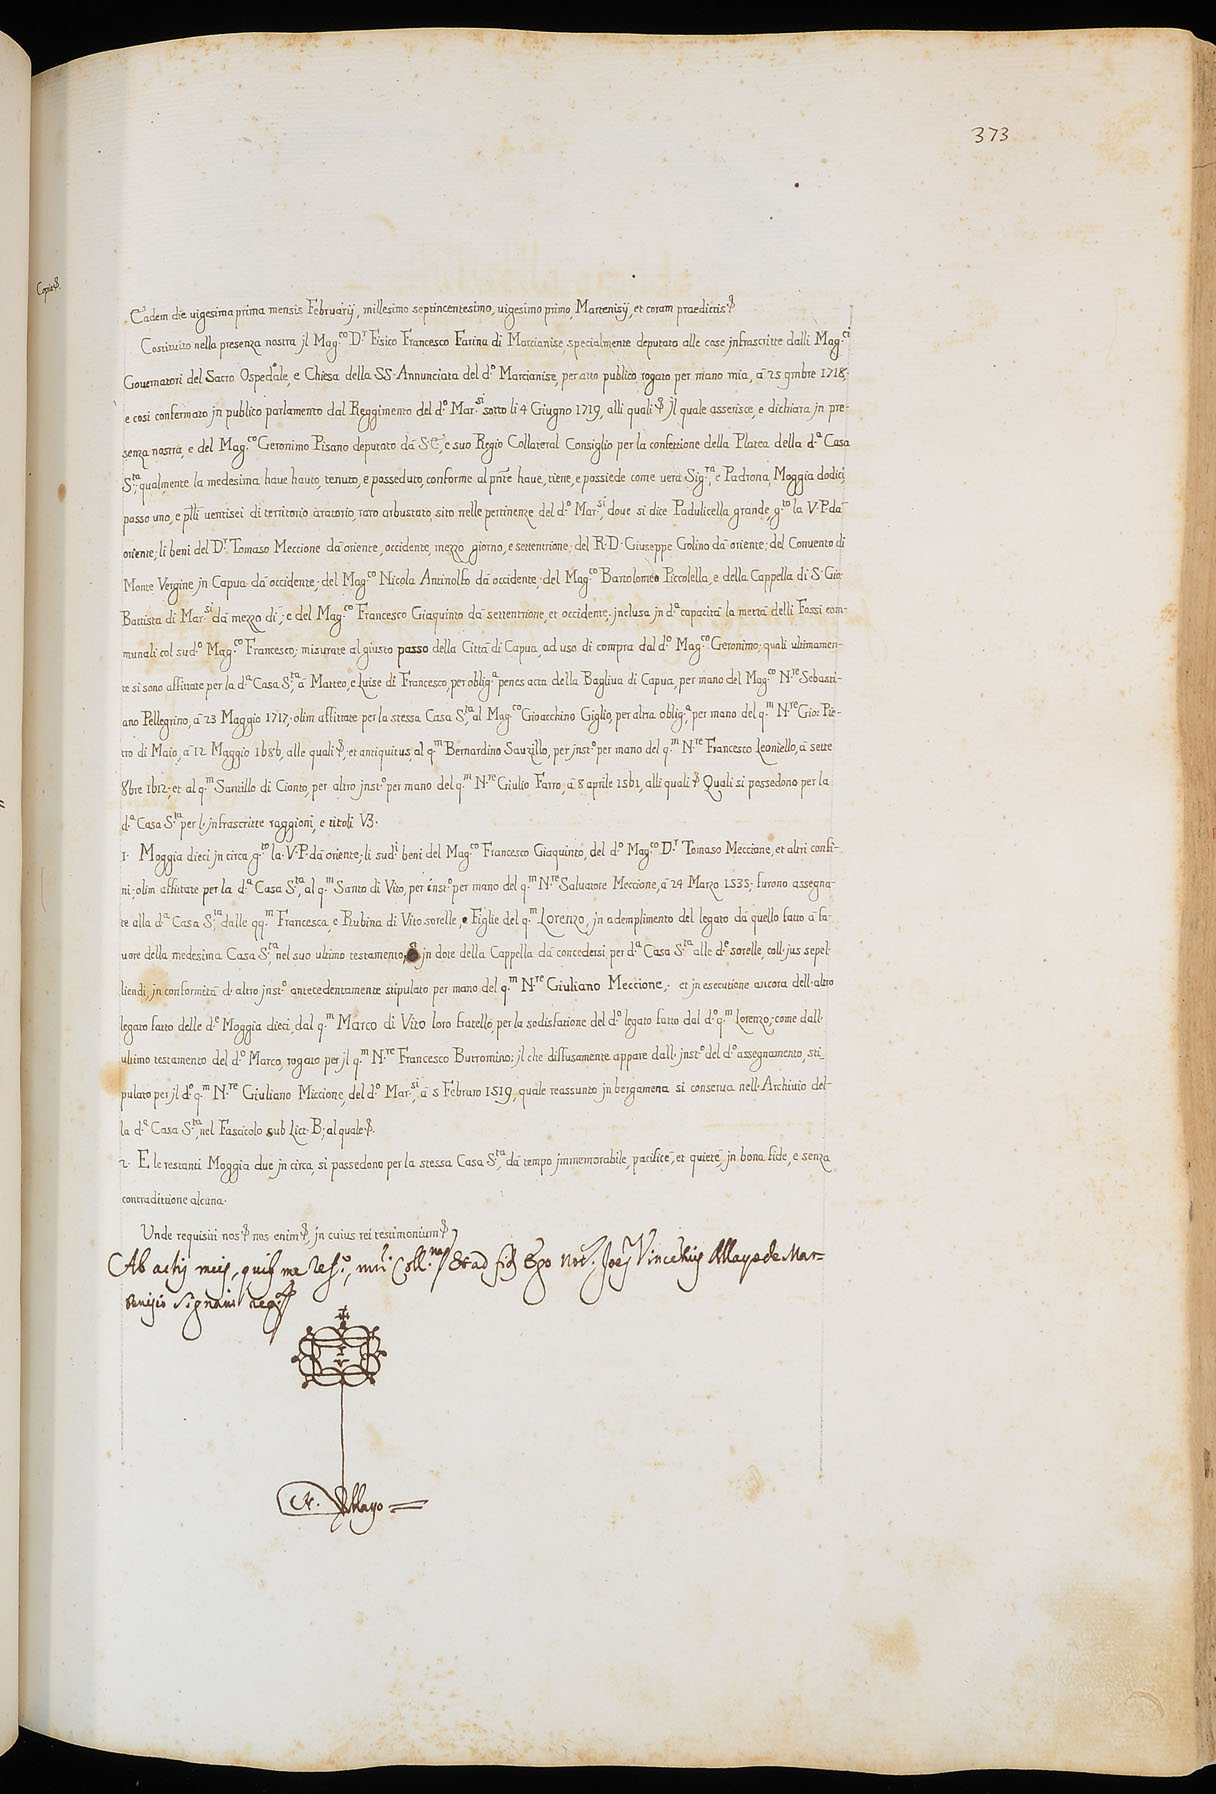 373
Copia &.
Eadem die uigesima prima mensis Februarij, millesimo septincentesimo, uigesimo primo, Martenisij, et coram praedictis &
Costituito nella presenza nostra jl Mag.co D.r Fisico Francesco Farina di Marcianise, specialmente deputato alle cose jnfrascritte dalli Mag.ci
Gouernatori del Sacro Ospedale, e Chiesa della SS. Annunciata del d.o Marcianise, per atto publico, rogato per mano mia, à 25 9mbre 1718;
e così confermato jn publico parlamento dal Reggimento del d.o Mar.si sotto li 4 Giugno 1719, alli quali & Jl quale asserisce, e dichiara jn pre-
senza nostra, e del Mag.co Geronimo Pisano deputato dà S.E., e suo Regio Collateral Consiglio per la confettione della Platea della d.a Casa
S.ta, qualmente la medesima haue hauto, tenuto, e posseduto, conforme al pnte haue, tiene, e possiede come uera Sig.ra, e Padrona, Moggia dodici,
passo uno, e pssi uentisei di territorio aratorio, raro arbustato, sito nelle pertinenze del d.o Mar.si, doue si dice Padulicella grande, g.to la V.P. dà
oriente; li beni del D.r Tomaso Meccione dà oriente, occidente, mezzo giorno, e settentrione; del R.D. Giuseppe Golino dà oriente; del Conuento di
Monte Vergine jn Capua dà occidente; del Mag.co Nicola Antinolfo dà occidente; del Mag.co Bartolomeo Piccolella, e della Cappella di S. Gio:
Battista di Mar.si dà mezzo dì; e del Mag.co Francesco Giaquinto dà settentrione, et occidente; jnclusa jn d.a capacità la mettà delli Fossi com-
munali col sud.o Mag.co Francesco; misurate al giusto passo della Città di Capua, ad uso di compra dal d.o Mag.co Geronimo; quali ultimamen-
te si sono affittate per la d.a Casa S.ta, à Matteo, e Luise di Francesco, per oblig.a penes acta della Bagliua di Capua, per mano del Mag.co N.re Sebasti-
ano Pellegrino, à 23 Maggio 1717; olim affittate per la stessa Casa S.ta al Mag.co Gioacchino Giglio, per altra oblig.a, per mano del q.m N.re Gio: Pie-
tro di Maio, à 12 Maggio 1656, alle quali &; et antiquitus, al q.m Bernardino Sauzillo, per jnst.o per mano del q.m N.re Francesco Leoniello, à sette
8bre 1612; et al q.m Santillo di Cionto, per altro jnst.o per mano del q.m N.re Giulio Farro, à 8 aprile 1561, alli quali & Quali si possedono per la
d.a Casa S.ta per l' jnfrascritte raggioni, e titoli V3.
1. Moggia dieci jn circa, g.to la V.P. dà oriente; li sud.i beni del Mag.co Francesco Giaquinto, del d.o Mag.co D.r Tomaso Meccione, et altri confi-
ni; olim affittate per la d.a Casa S.ta, al q.m Santo di Vito, per jnst.o per mano del q.m N.re Saluatore Meccione, à 24 Marzo 1535; furono assegna-
te alla d.a Casa S.ta dalle qq.m Francesca, e Rubina di Vito sorelle, e Figlie del q.m Lorenzo, jn adempimento del legato dà quello fatto à fa-
uore della medesima Casa S.ta, nel suo ultimo testamento, jn dote della Cappella dà concedersi per d.a Casa S.ta alle d.e sorelle, coll. jus sepel-
liendi, jn conformità d' altro jnst.o antecedentamente stipulato per mano del q.m N.re Giuliano Meccione; et jn esecutione ancora dell' altro
legato fatto delle d.e Moggia dieci, dal q.m Marco di Vito loro fratello, per la sodisfatione del d.o legato fatto dal d.o q.m Lorenzo; come dall'
ultimo testamento del d.o Marco, rogato per jl q.m N.re Francesco Butromino; jl che diffusamente appare dall' jnst.o del d.o assegnamento, sti-
pulato per jl d.o q.m N.re Giuliano Miccione, del d.o Mar.si, à 5 Febraro 1519, quale reassunto jn bergamena si conserua nell' Archiuio del-
la d.a Casa S.ta, nel Fascicolo sub Lict. B; al quale &.
2. E le restanti Moggia due jn circa, si possedono per la stessa Casa S.ta, dà tempo jmmemorabile, pacificè, et quietè, jn bona fide, e senza
contradittione alcuna.
Unde requisiti nos & nos enim &, jn cuius rei testimonium &
Ab actis meis, Coll.ne Et ad fid Ego Not. Joes Vincentius Mayo de Mar-
tenisio signaui req.s
N. Mayo